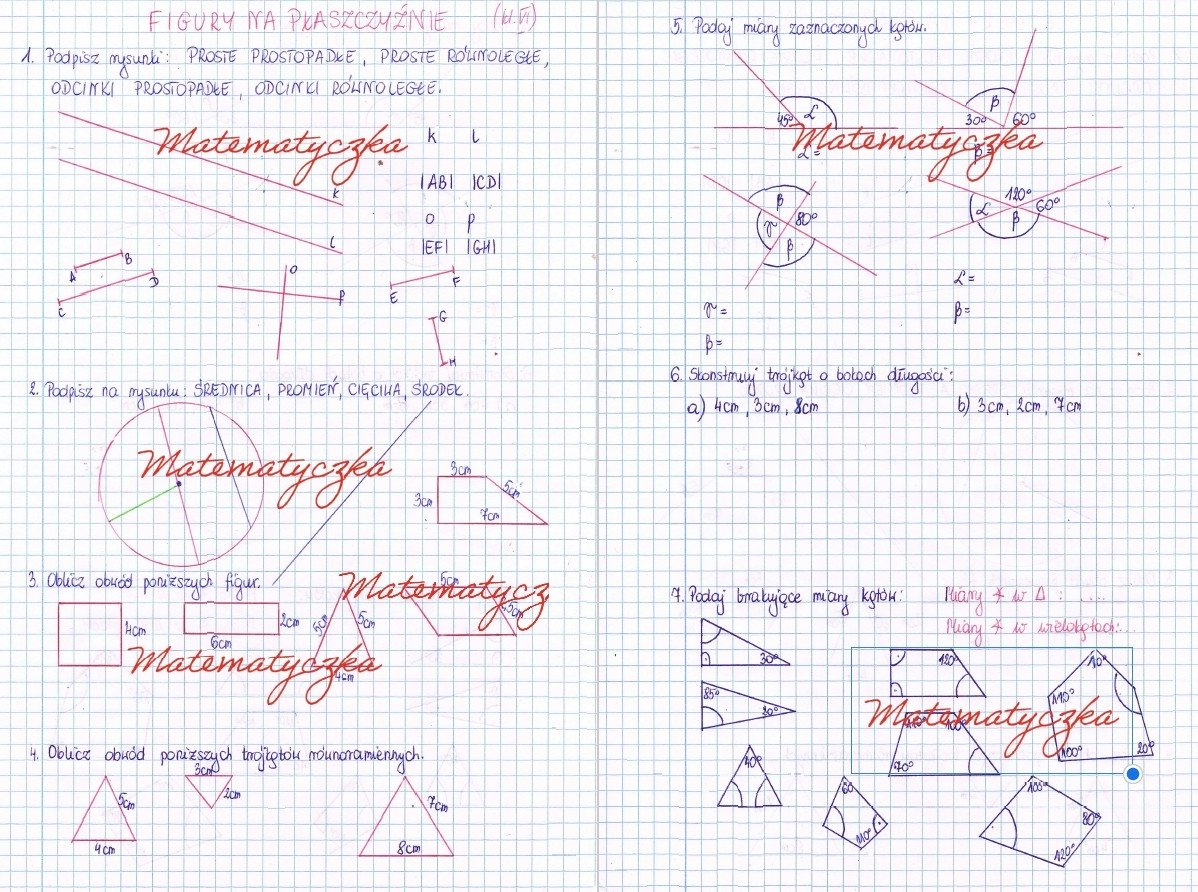 FIGURY NA PŁASZCZYŹNIE (kl.VI)
1. Podpisz rysunki: PROSTE PROSTOPADŁE, PROSTE RÓWNOLEGŁE,
ODCINKI PROSTOPADŁE, ODCINKI RÓWNOLEGŁE.
Matematyczka
k l
|AB| |CD|
O p
|EF| |GH|
k
l
A B
C D
O
P
E F
G
H
2. Podpisz na rysunku: ŚREDNICA, PROMIEŃ, CIĘCIWA, ŚRODEK.
Matematyczka
3cm
3cm
5cm
7cm
3. Oblicz obwód poniższych figur.
Matematycz
4cm
2cm
6cm
5cm
5cm
4cm
5cm
2,5cm
Matematyczka
4. Oblicz obwód poniższych trójkątów równoramiennych.
5cm
4cm
3cm
2cm
7cm
8cm
5. Podaj miary zaznaczonych kątów.
45° α
α=
β
30° 60°
β=
Matematyczka
β
γ 80°
β
γ=
β=
120°
α 60°
β
α=
β=
6. Skonstruuj trójkąt o bokach długości:
a) 4cm, 3cm, 8cm b) 3cm, 2cm, 7cm
7. Podaj brakujące miary kątów: Miary ∢ w Δ: ....
Miary ∢ w wielokątach:...
30°
85°
20°
40°
120°
Matematyczka
110° 100°
70°
10°
110°
100° 20°
60
110°
100°
80°
120°